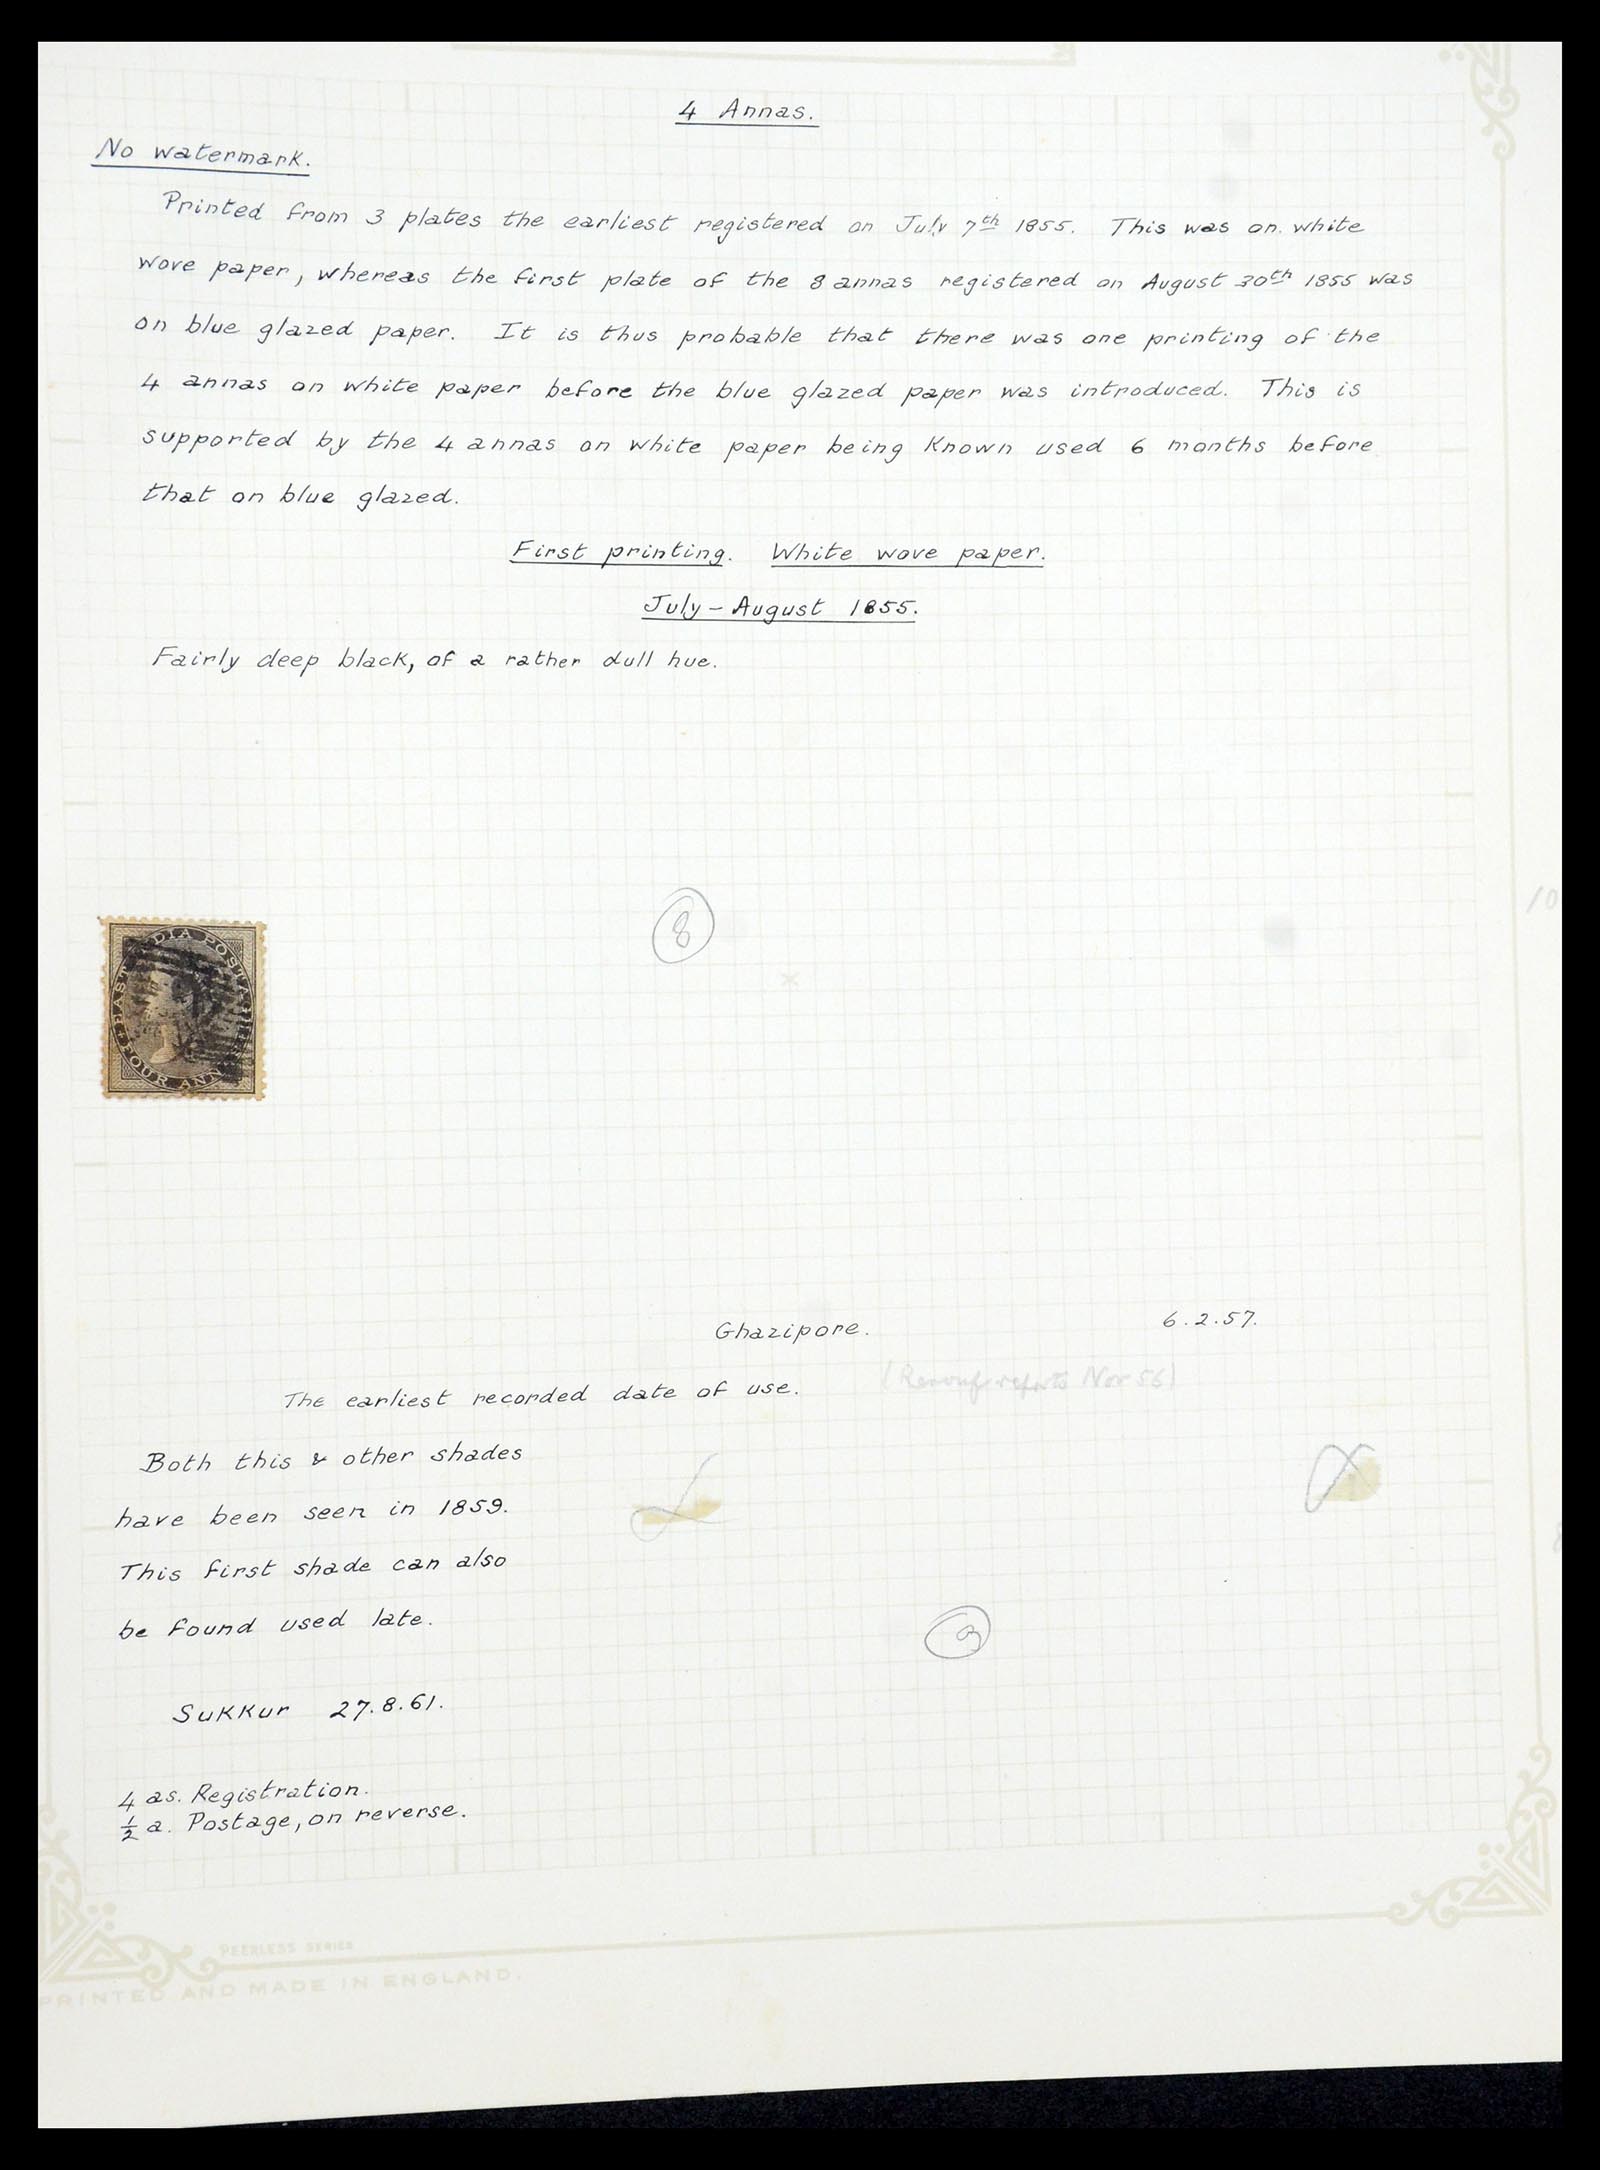 4 Annas.
No watermark.
Printed from 3 plates the earliest registered on July 7th 1855. This was on white
wove paper, whereas the first plate of the 8 annas registered on August 30th 1855 was
on blue glazed paper. It is thus probable that there was one printing of the
4 annas on white paper before the blue glazed paper was introduced. This is
supported by the 4 annas on white paper being known used 6 months before
that on blue glazed.
First printing. White wove paper.
July - August 1855.
Fairly deep black, of a rather dull hue.
8
10
EAST INDIA POSTAGE
FOUR ANN
Ghazipore. 6.2.57.
The earliest recorded date of use. ( reports Nov 56)
Both this & other shades
have been seen in 1859.
This first shade can also
be found used late.
3
Sukkur 27.8.61.
4 as. Registration.
½ a. Postage, on reverse.
PEERLESS SERIES
PRINTED AND MADE IN ENGLAND.